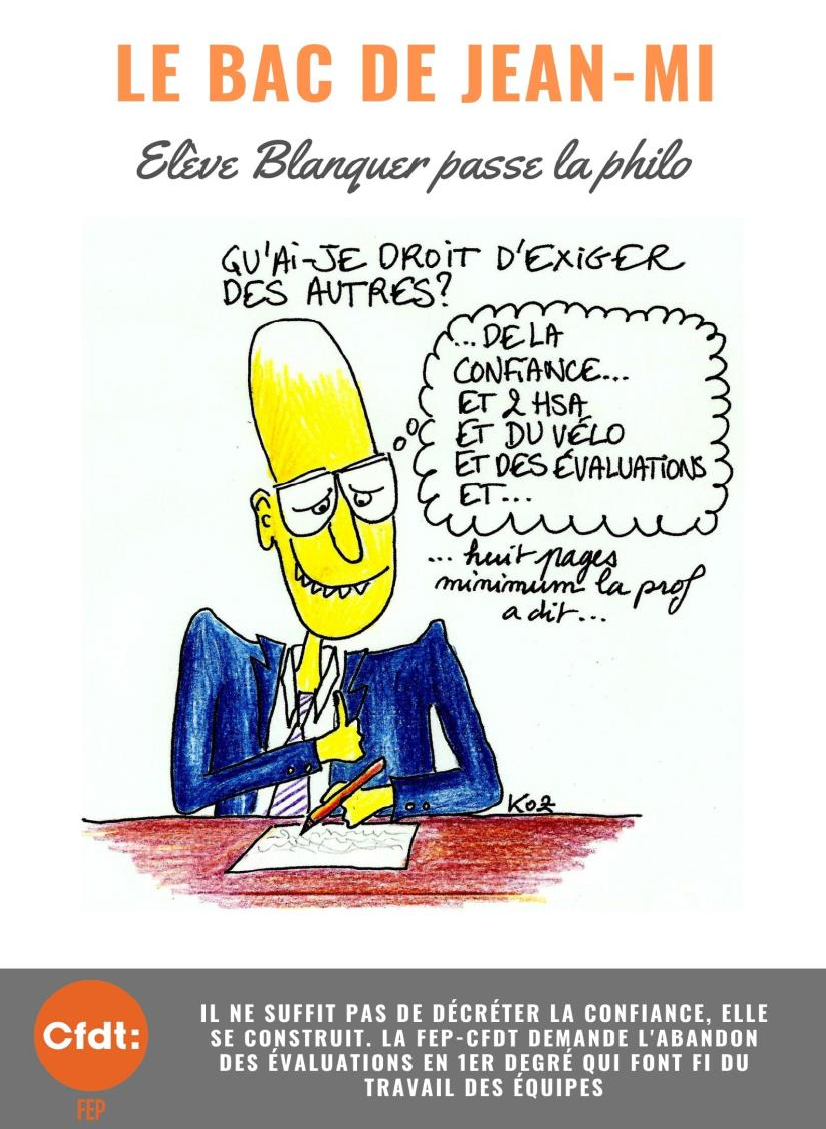 LE BAC DE JEAN-MI
Elève Blanquer passe la philo
QU'AI-JE DROIT D'EXIGER
DES AUTRES?
...DE LA
CONFIANCE...
ET 2 HSA
ET DU VÉLO
ET DES ÉVALUATIONS
ET...
... huit pages
minimum la prof
a dit...
Koz
Cfdt:
FEP
IL NE SUFFIT PAS DE DÉCRÉTER LA CONFIANCE, ELLE
SE CONSTRUIT. LA FEP-CFDT DEMANDE L'ABANDON
DES ÉVALUATIONS EN 1ER DEGRÉ QUI FONT FI DU
TRAVAIL DES ÉQUIPES